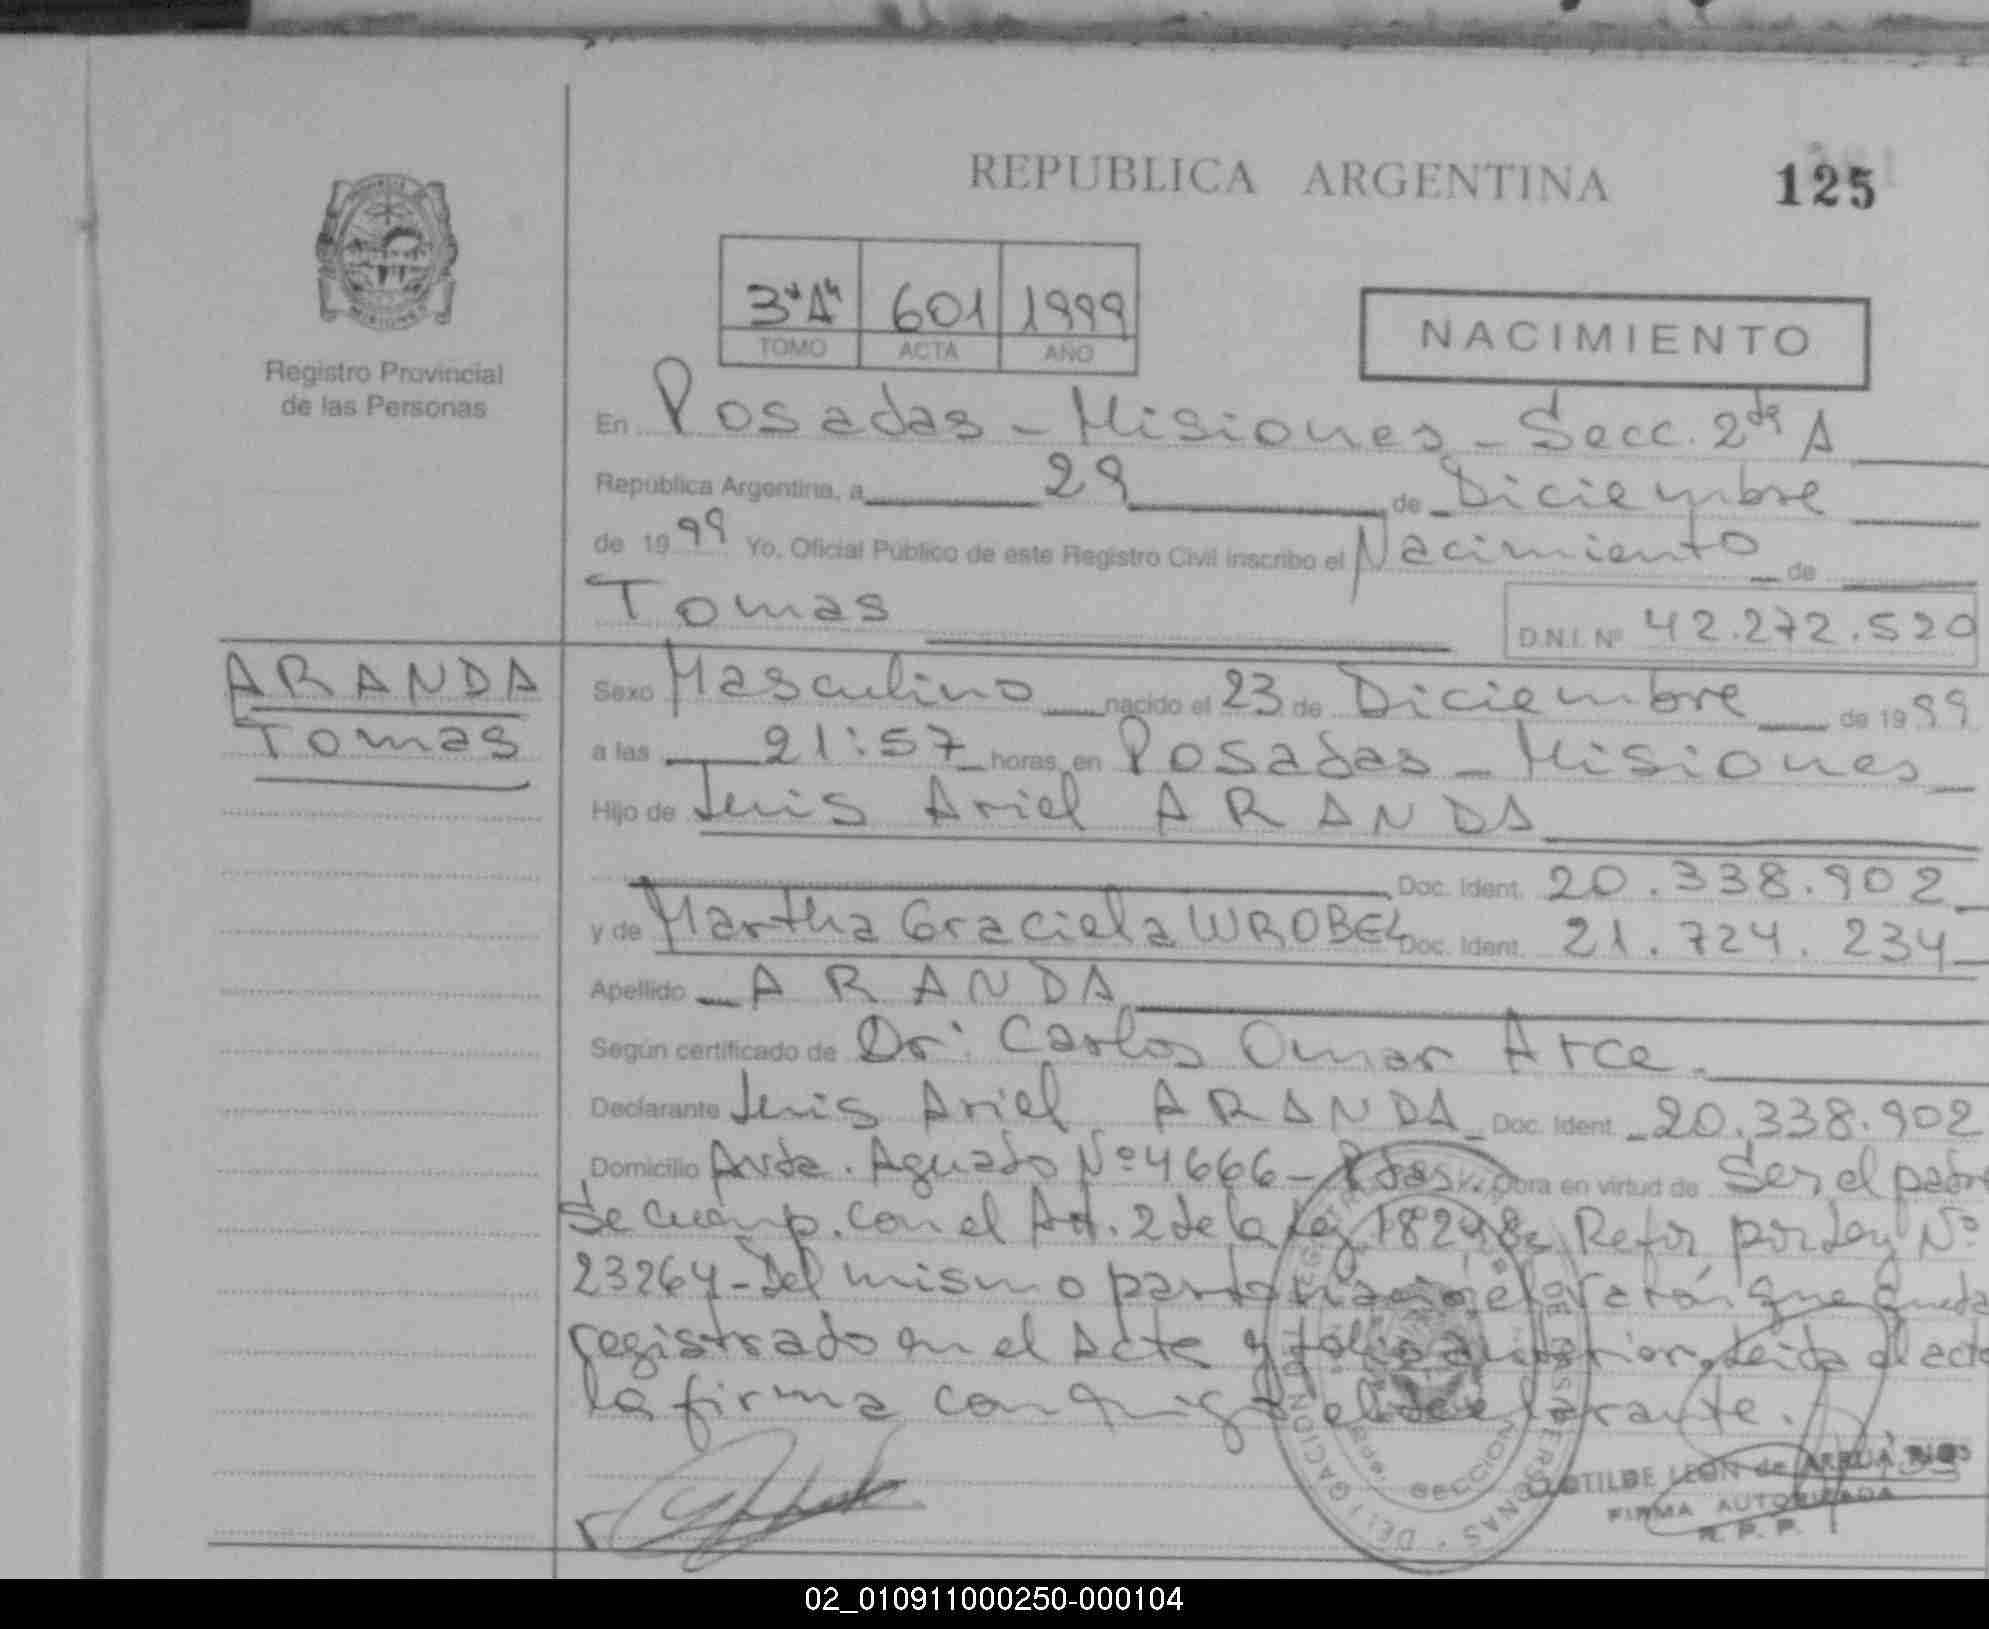 REPUBLICA ARGENTINA
125
3"A" 601 1999
TOMO ACTA AÑO
NACIMIENTO
MISIONES
Registro Provincial
de las Personas
En Posadas - Misiones - Secc. 2da A
República Argentina, a 29 de Diciembre
de 1999 Yo, Oficial Público de este Registro Civil inscribo el Nacimiento de
Tomas
D.N.I. Nº 42.272.520
ARANDA
Tomas
Sexo Masculino nacido el 23 de Diciembre de 1999
a las 21:57 horas, en Posadas - Misiones
Hijo de Luis Ariel ARANDA
Doc. Ident. 20.338.902
y de Martha Graciela WROBEL Doc. Ident. 21.724.234
Apellido ARANDA
Según certificado de Dr. Carlos Omar Arce.
Declarante Luis Ariel ARANDA Doc. Ident. 20.338.902
Domicilio Avda. Aguado Nº 4666 - Pdas. Obra en virtud de Ser el padre
Se cump. con el Art. 2 de la Ley 18248, Refor por Ley Nº
23264 - Del mismo parto nació el varón que queda
registrado en el Acta y folio anterior, leída el acta
la firma conmigo el declarante.
SECCION
CLOTILDE LEON de ARRUA
FIRMA AUTORIZADA
R. P. P.
02_010911000250-000104